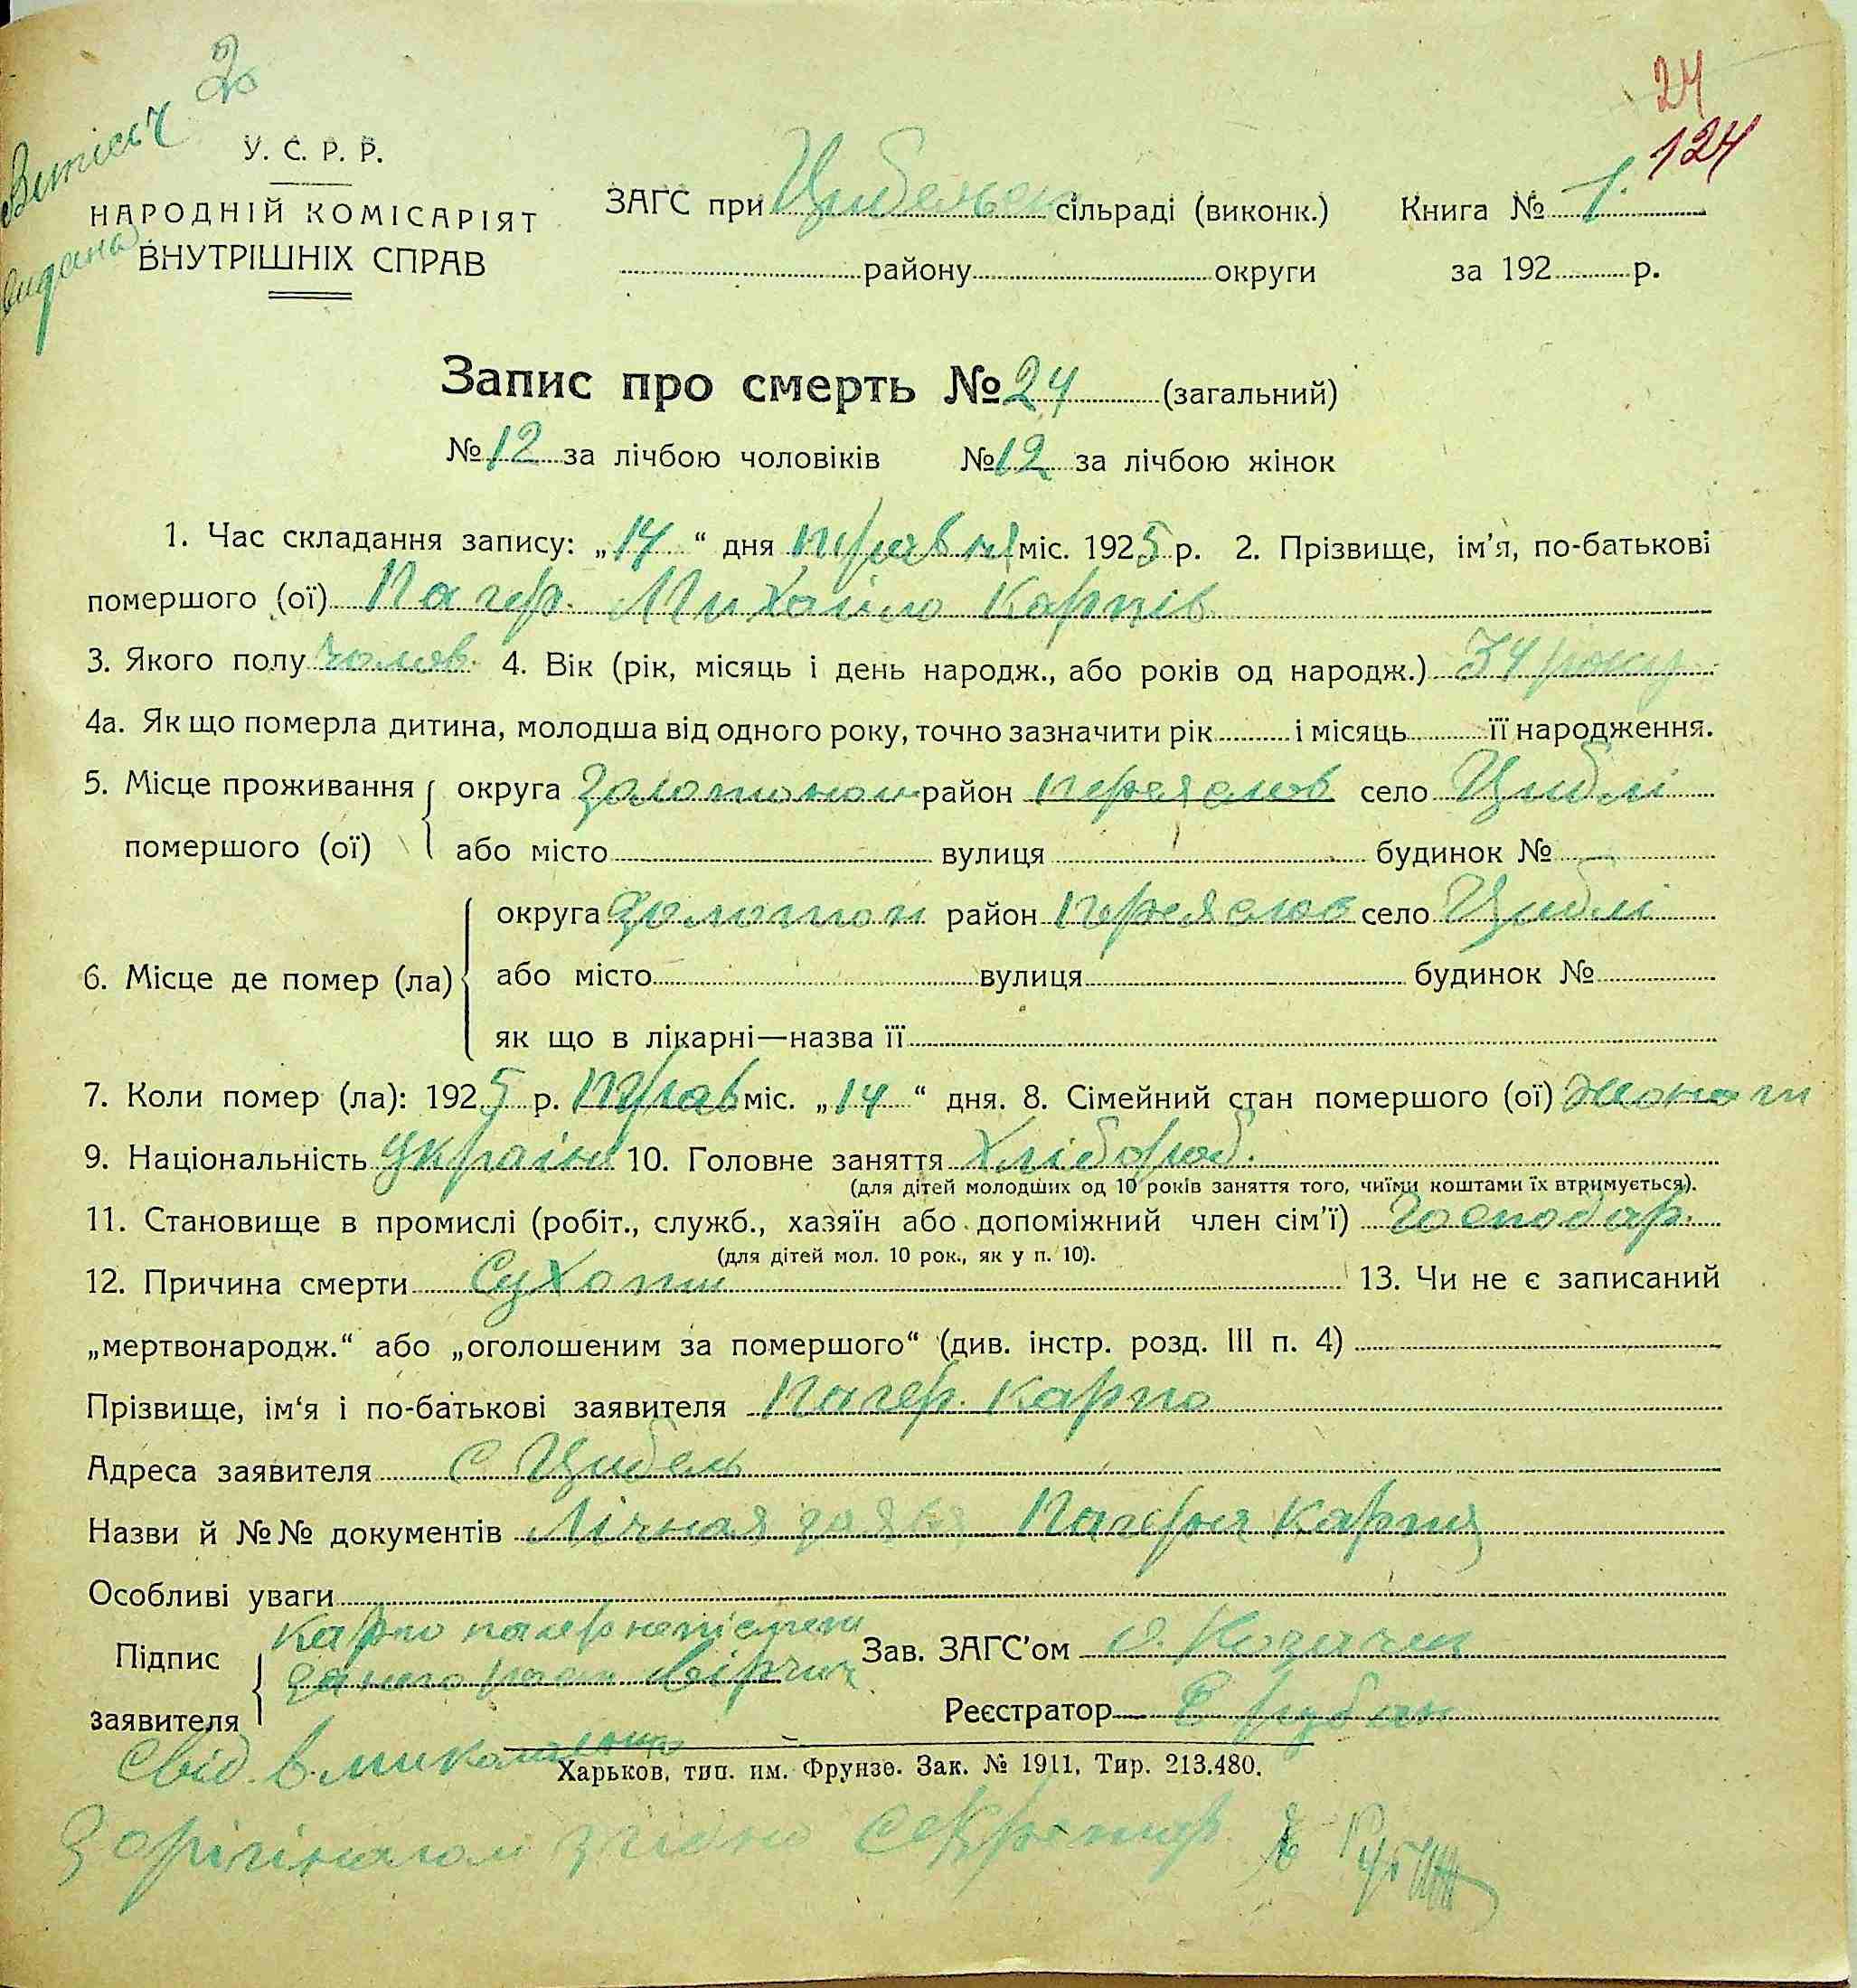 24
124
Витісь ч 2
видана
У. С. Р. Р.
НАРОДНІЙ КОМІСАРІЯТ
ВНУТРІШНІХ СПРАВ
ЗАГС при Цибельск сільраді (виконк.) Книга № 1.
району округи за 192 р.
Запис про смерть № 24 (загальний)
№ 12 за лічбою чоловіків № 12 за лічбою жінок
1. Час складання запису: „14“ дня травня міс. 1925 р. 2. Прізвище, ім’я, по-батькові
помершого (ої) Пагер. Михайло Карпів
3. Якого полу чолов. 4. Вік (рік, місяць і день народж., або років од народж.) 34 року
4а. Як що померла дитина, молодша від одного року, точно зазначити рік і місяць її народження.
5. Місце проживання округа Золотонош район Переяслов село Циблі
помершого (ої) або місто вулиця будинок №
округа Золотон район Переяслов село Циблі
6. Місце де помер (ла) або місто вулиця будинок №
як що в лікарні—назва її
7. Коли помер (ла): 1925 р. Трав міс. „14“ дня. 8. Сімейний стан помершого (ої)
9. Національність Україн 10. Головне заняття Хлібороб.
(для дітей молодших од 10 років заняття того, чиїми коштами їх втримується).
11. Становище в промислі (робіт., служб., хазяїн або допоміжний член сім’ї) Господар.
(для дітей мол. 10 рок., як у п. 10).
12. Причина смерти Сухоти 13. Чи не є записаний
„мертвонародж.“ або „оголошеним за помершого“ (див. інстр. розд. III п. 4)
Прізвище, ім‘я і по-батькові заявителя Пагер. Карпо
Адреса заявителя с Цибель
Назви й №№ документів Лічная заява Пагеря Карпа
Особливі уваги
Підпис Карпо пагер неписьмен Зав. ЗАГС’ом
заявителя Реєстратор Є Рубан
Свід. В.
Харьков, тип. им. Фрунзе. Зак. № 1911, Тир. 213.480.
З орігіналом згідно Секретар